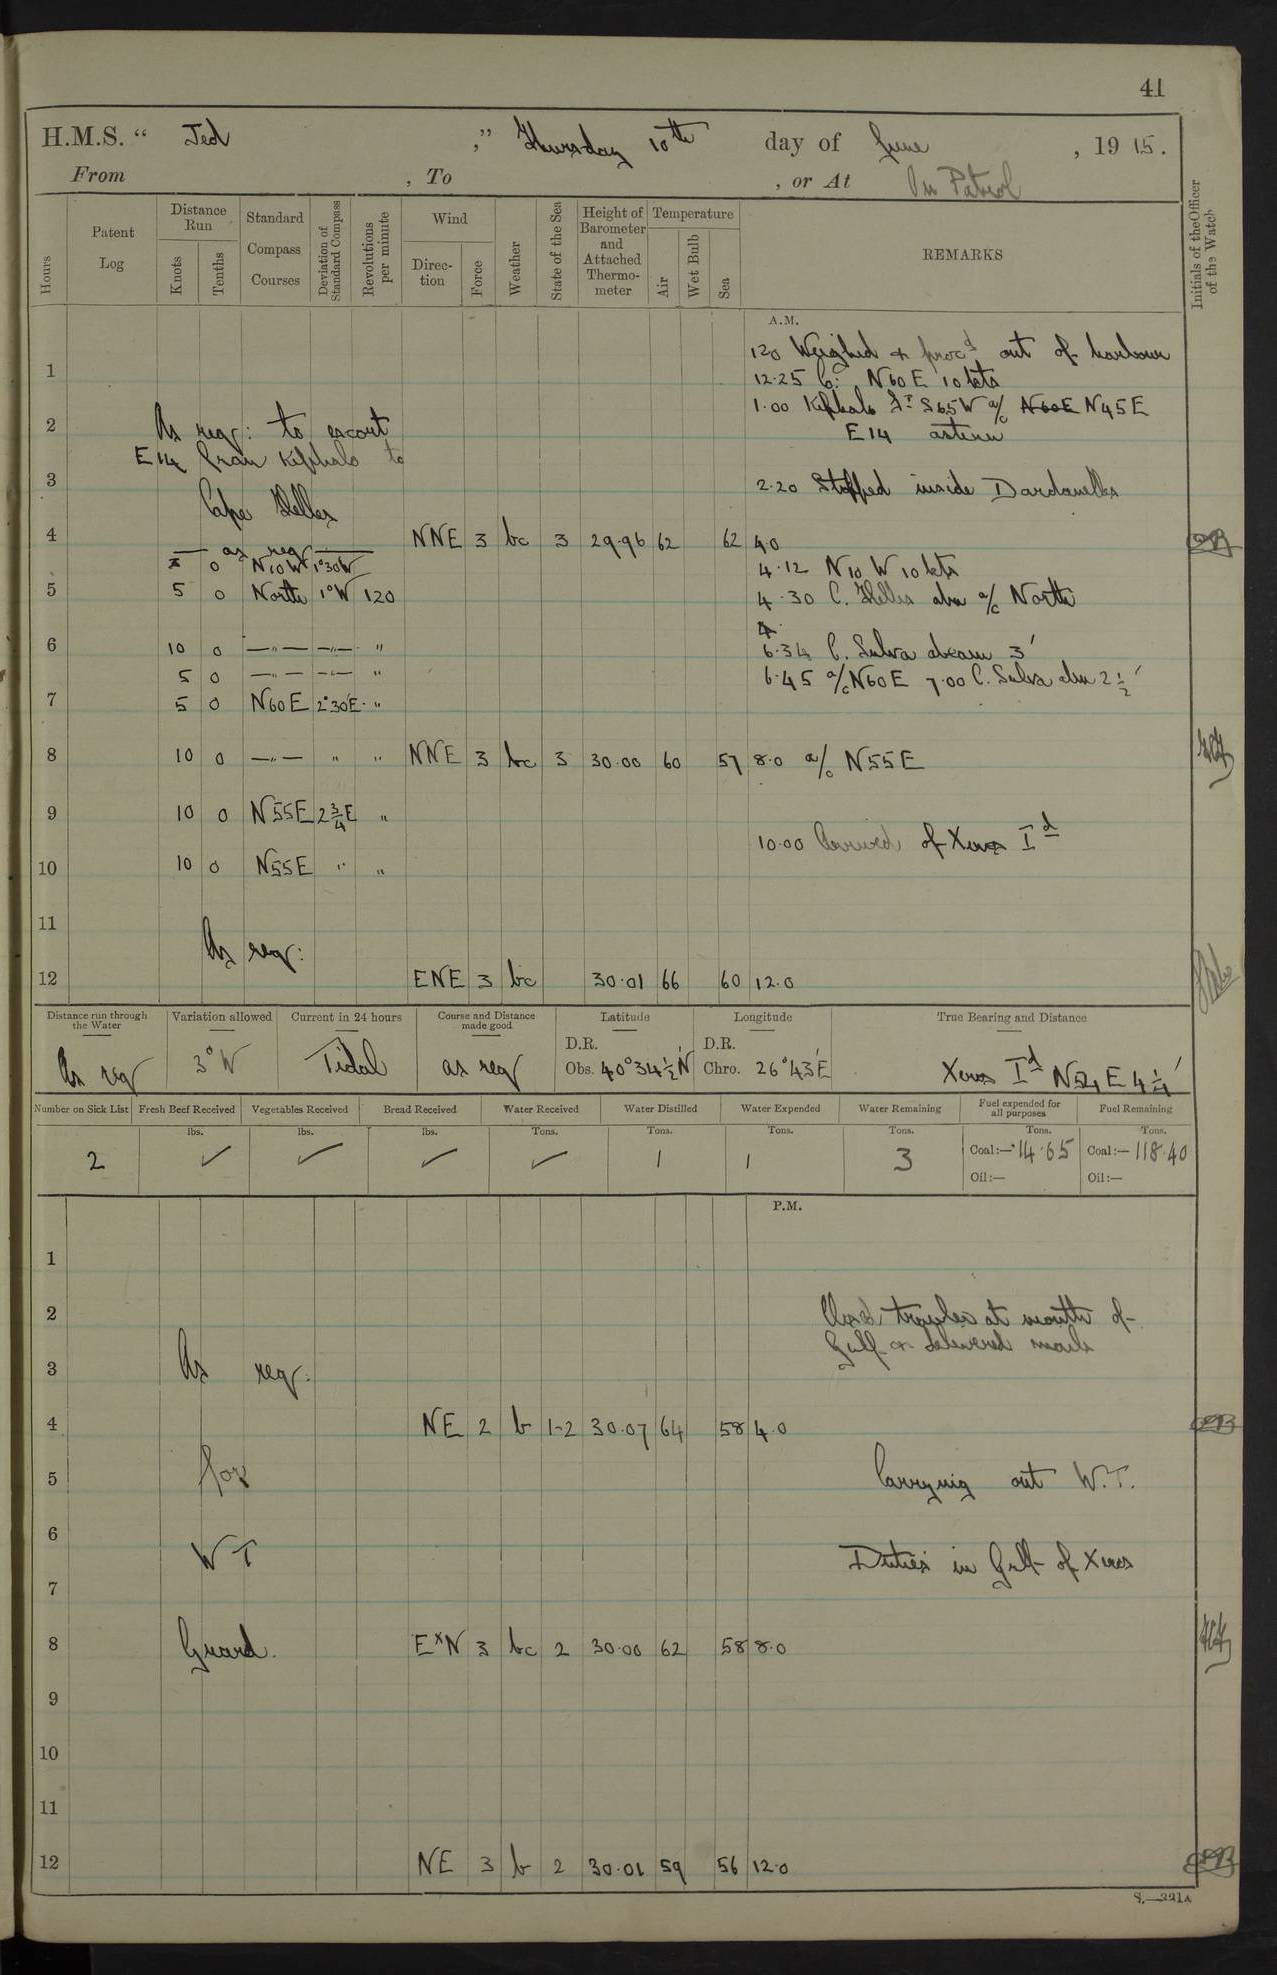 41
H.M.S. " Jed ," Thursday 10th day of June , 1915.
From , To , or At On Patrol
Hours
Patent Log
Distance Run
Knots
Tenths
Standard Compass Courses
Deviation of Standard Compass
Revolutions per minute
Wind
Direction
Force
Weather
State of the Sea
Height of Barometer and Attached Thermometer
Temperature
Air
Wet Bulb
Sea
REMARKS
Initials of the Officer of the Watch
A.M.
120 Weighed & proc'd out of harbour
1
12.25 Co: N60E 10 kts
1.00 Kephalo Lt S65W a/c N60E N45E
2 As req: to escort
E14 astern
E14 from Kephalo to
3 2.20 Stopped inside Dardanelles
Cape Helles
4 NNE 3 bc 3 29.96 62 62 4.0
as req
0 N10W 1°30W 4.12 N10W 10 kts
5 5 0 North 1°W 120 4.30 C. Helles abm a/c North
6 10 0 —"— —"— " 6.34 C. Sulva abeam 3'
5 0 —"— —"— " 6.45 a/c N60E 7.00 C. Sulva abm 2½'
7 5 0 N60E 2°30'E "
8 10 0 —"— " " NNE 3 bc 3 30.00 60 57 8.0 a/c N55E
9 10 0 N55E 2¾E "
10.00 Arrived of Xeros Id
10 10 0 N55E " "
11
As req:
12 ENE 3 bc 30.01 66 60 12.0
Distance run through the Water
Variation allowed
Current in 24 hours
Course and Distance made good
Latitude
Longitude
True Bearing and Distance
D.R. D.R.
As req 3°W Tidal as req Obs. 40°34½'N Chro. 26°43'E Xeros Id N54E 4¼'
Number on Sick List
Fresh Beef Received
Vegetables Received
Bread Received
Water Received
Water Distilled
Water Expended
Water Remaining
Fuel expended for all purposes
Fuel Remaining
lbs. lbs. lbs. Tons. Tons. Tons. Tons. Tons. Tons.
2 ✓ ✓ ✓ ✓ 1 1 3 Coal:— 14.65 Coal:— 118.40
Oil:— Oil:—
P.M.
1
2 trawler at mouth of
Gulf & delivered mails
3 As req:
4 NE 2 b 1-2 30.07 64 58 4.0
5 for Carrying out W.T.
6
W T Duties in Gulf of Xeros
7
8 Guard. ExN 3 bc 2 30.00 62 58 8.0
9
10
11
12 NE 3 b 2 30.01 59 56 12.0
S.—321A